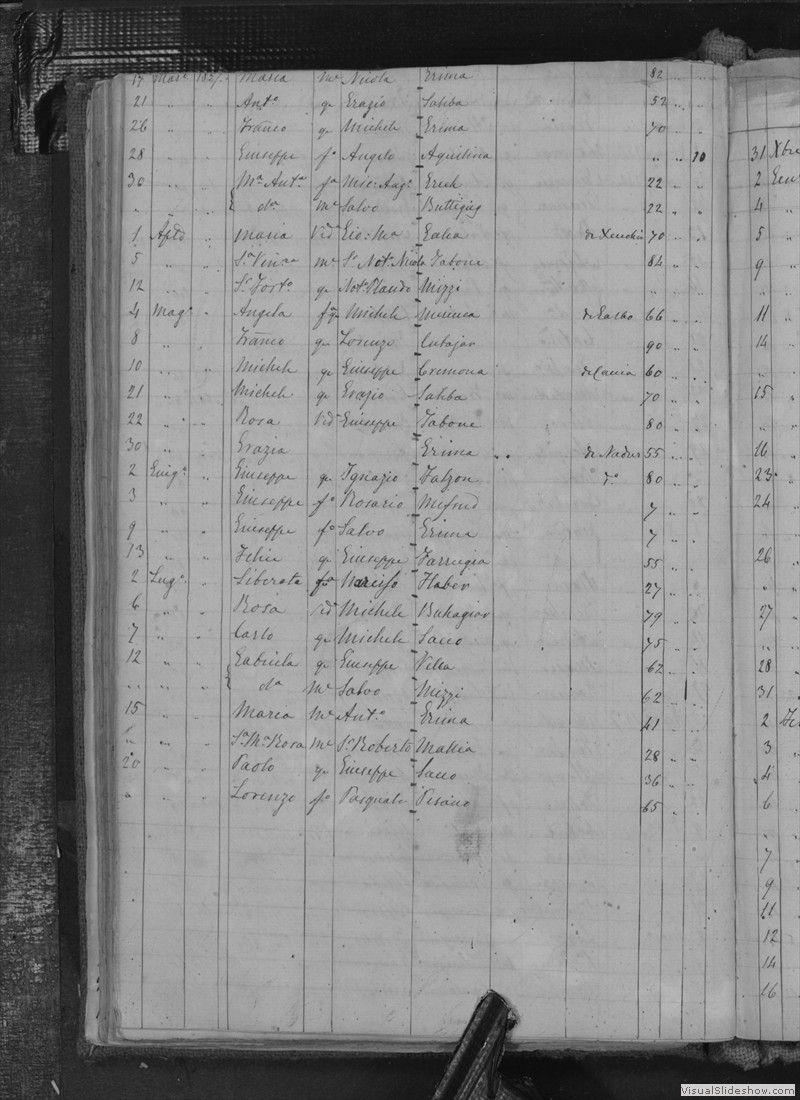 17 Mar. 1827 Maria me Nicola Grima 82 " "
21 " " Anto. q Grazio Saliba 52 " "
26 " " Franco q Michele Grima 70 " "
28 " " Giuseppe fo Angelo Aquilina " " 10
30 " " Ma Anta fa Mic: Ang. Grech 22 " "
" da me Salvo Buttigieg 22 " "
1 " Maria Vida Gio: Ma Galea de Xeuchia 70 " "
5 " " Sa me Sr Notr Nicola Tabone 84 " "
12 " " q Notr Mizzi " "
4 Mago " Angela Michele de Garbo 66 " "
8 " " Franco q Lorenzo Cutajar 90 " "
10 " " Michele q Giuseppe Cremona de Caccia 60 " "
21 " " Michele q Grazio Saliba 70 " "
22 " " Rosa Vida Giuseppe Tabone 80 " "
30 " " Grazia Grima de Nadur 55 " "
2 Giugo " Giuseppe q Ignazio Falzon do 80 " "
3 " Giuseppe fo Rosario Mifsud 7 " "
9 " " Giuseppe fo Salvo Grima 7 " "
13 " " Felice q Giuseppe Farrugia 55 " "
2 Lugo " Liberata fa Narciso Haber 27 " "
6 " " Rosa Vida Michele Buhagiar 79 " "
7 " " Carlo q Michele Sacco 75 " "
12 " " Gabriela q Giuseppe Vella 62 " "
" " " da Me Salvo Mizzi 62 " "
15 " " Maria Me Anto. Grima 41 " "
" " " Sa Ma Rosa me Sr Roberto Mallia 28 " "
20 " " Paolo q Giuseppe Sacco 36 " "
" " " Lorenzo fo Pasquale Pisano 65 " "
31 Xbre
2 Gen
4 "
5 "
9 "
" "
11 "
14 "
" "
15 "
16 "
23 "
24 "
" "
26 "
27 "
" "
28 "
31 "
2 Fe
3 "
4 "
6 "
" "
7 "
9 "
11 "
12 "
14 "
16 "
VisualSlideshow.com